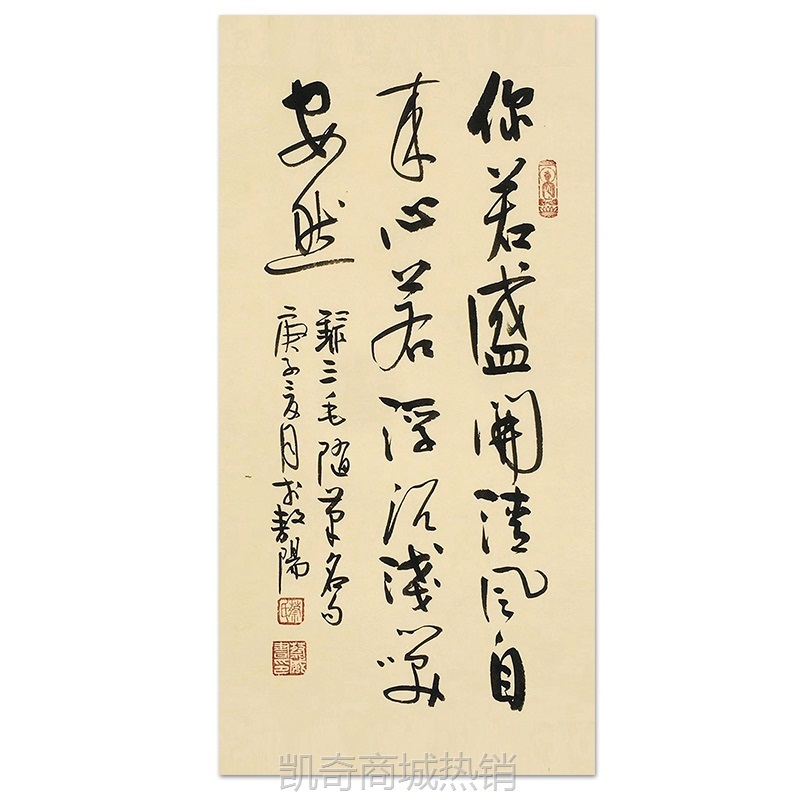 你若盛開清風自
来心若浮沉淺笑
安然
三毛随筆名句
庚子夏月於陽
凯奇商城热销